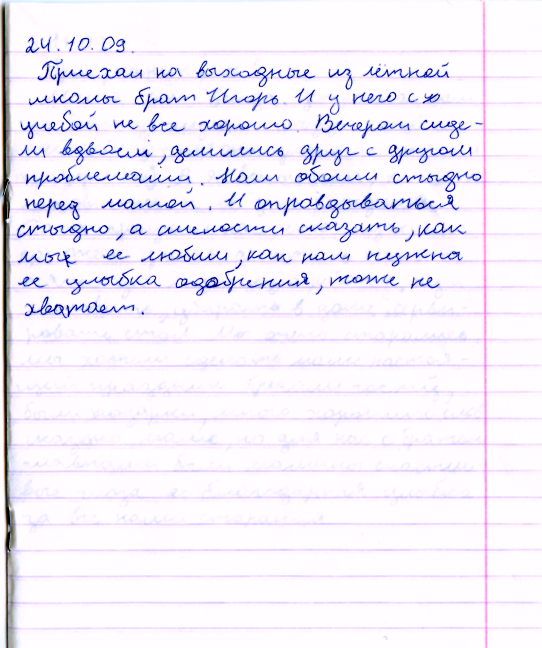 24.10.09.
Приехал на выходные из лётной
школы брат Игорь. И у него с
учебой не все хорошо. Вечером сиде-
ли вдвоем, делились друг с другом
проблемами. Нам обоим стыдно
перед мамой. И оправдываться
стыдно, а смелости сказать, как
мы ее любим, как нам нужна
ее улыбка одобрения, тоже не
хватает.